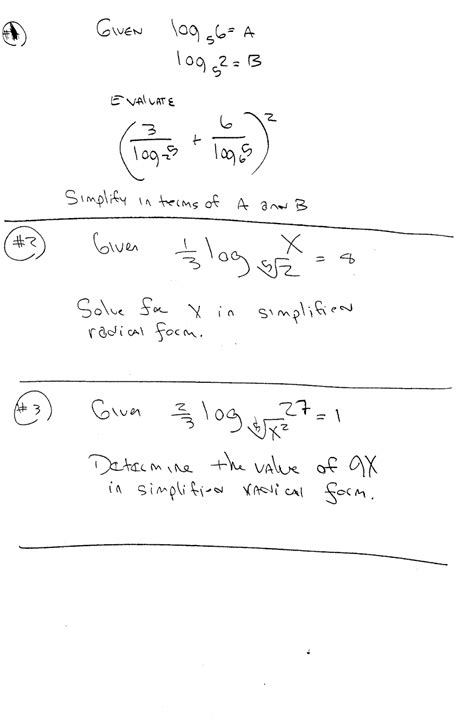 #1 GIVEN log₅6 = A
log₅2 = B
EVALUATE
(3/log₂5 + 6/log₆5)²
Simplify in terms of A and B
#2 Given 1/3 log X = 8
Solve for X in simplified
radical form.
#3 Given 2/3 log 27 = 1
Determine the value of 9X
in simplified radical form.